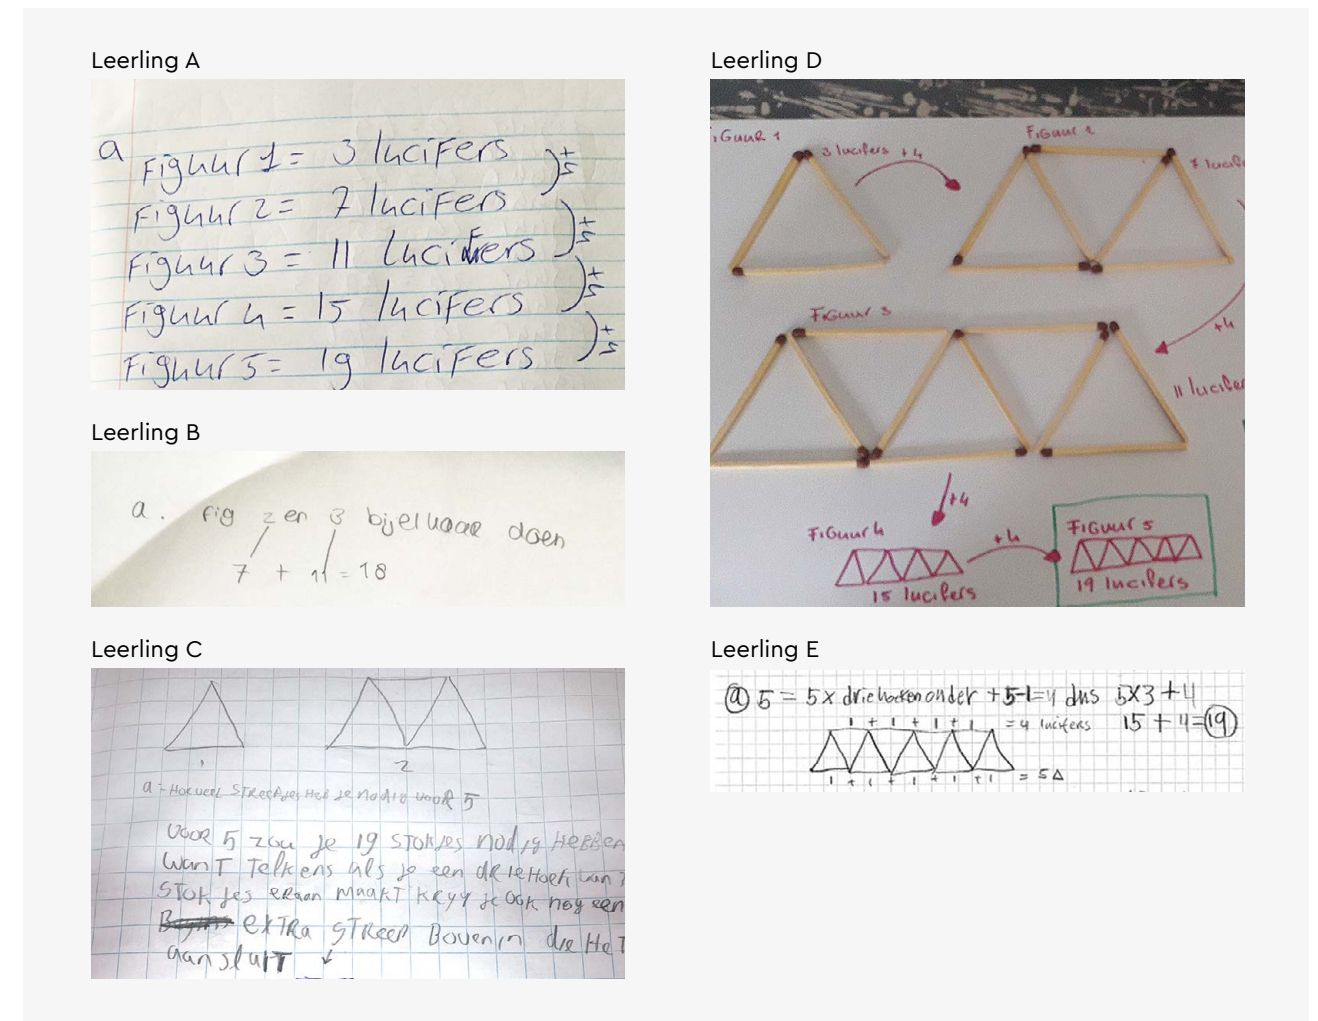 Leerling A
a Figuur 1 = 3 lucifers
Figuur 2 = 7 lucifers
Figuur 3 = 11 lucifers
Figuur 4 = 15 lucifers
Figuur 5 = 19 lucifers
Leerling B
a. Fig 2 en 3 bijelkaar doen
7 + 11 = 18
Leerling C
1
2
a - Hoeveel streepjes heb je nodig voor 5
Voor 5 zou je 19 stokjes nodig Hebben
want Telkens als je een drieHoek van
STokjes eraan maakT kryg je ook nog een
exTRa STReep Bovenin die HeT
aansluiT
Leerling D
Figuur 1
3 lucifers +4
Figuur 2
7 lucife
+4
Figuur 3
11 lucifer
+4
Figuur 4
15 lucifers
+4
Figuur 5
19 lucifers
Leerling E
a 5 = 5x driehoeken onder + 5-1=4 dus 5x3+4
1 + 1 + 1 + 1 = 4 lucifers 15 + 4 = 19
1 + 1 + 1 + 1 + 1 = 5 Δ